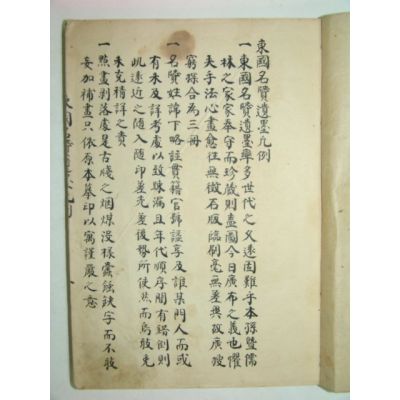 東國名賢遺墨凡例
一東國名賢遺墨舉多世代之久遠固難乎本孫曁儒
林之家家奉守而珍藏則盡圖今日廣布之義也懼
夫手法心畫愈往無徵石版臨刷毫無差與故廣搜
窮採合為三冊
一名賢姓諱下略註貫籍官號諡享及誰某門人而或
有未及詳考處以致疎漏且年代順序間有錯倒則
此遠近之隨入隨印差先差後勢所使然而烏敢免
未克精詳之責
一點畫剥落處是古牋之烟煤漫樣蠹蝕缺字而不敢
妄加補畫只依原本摹印以寓謹嚴之意